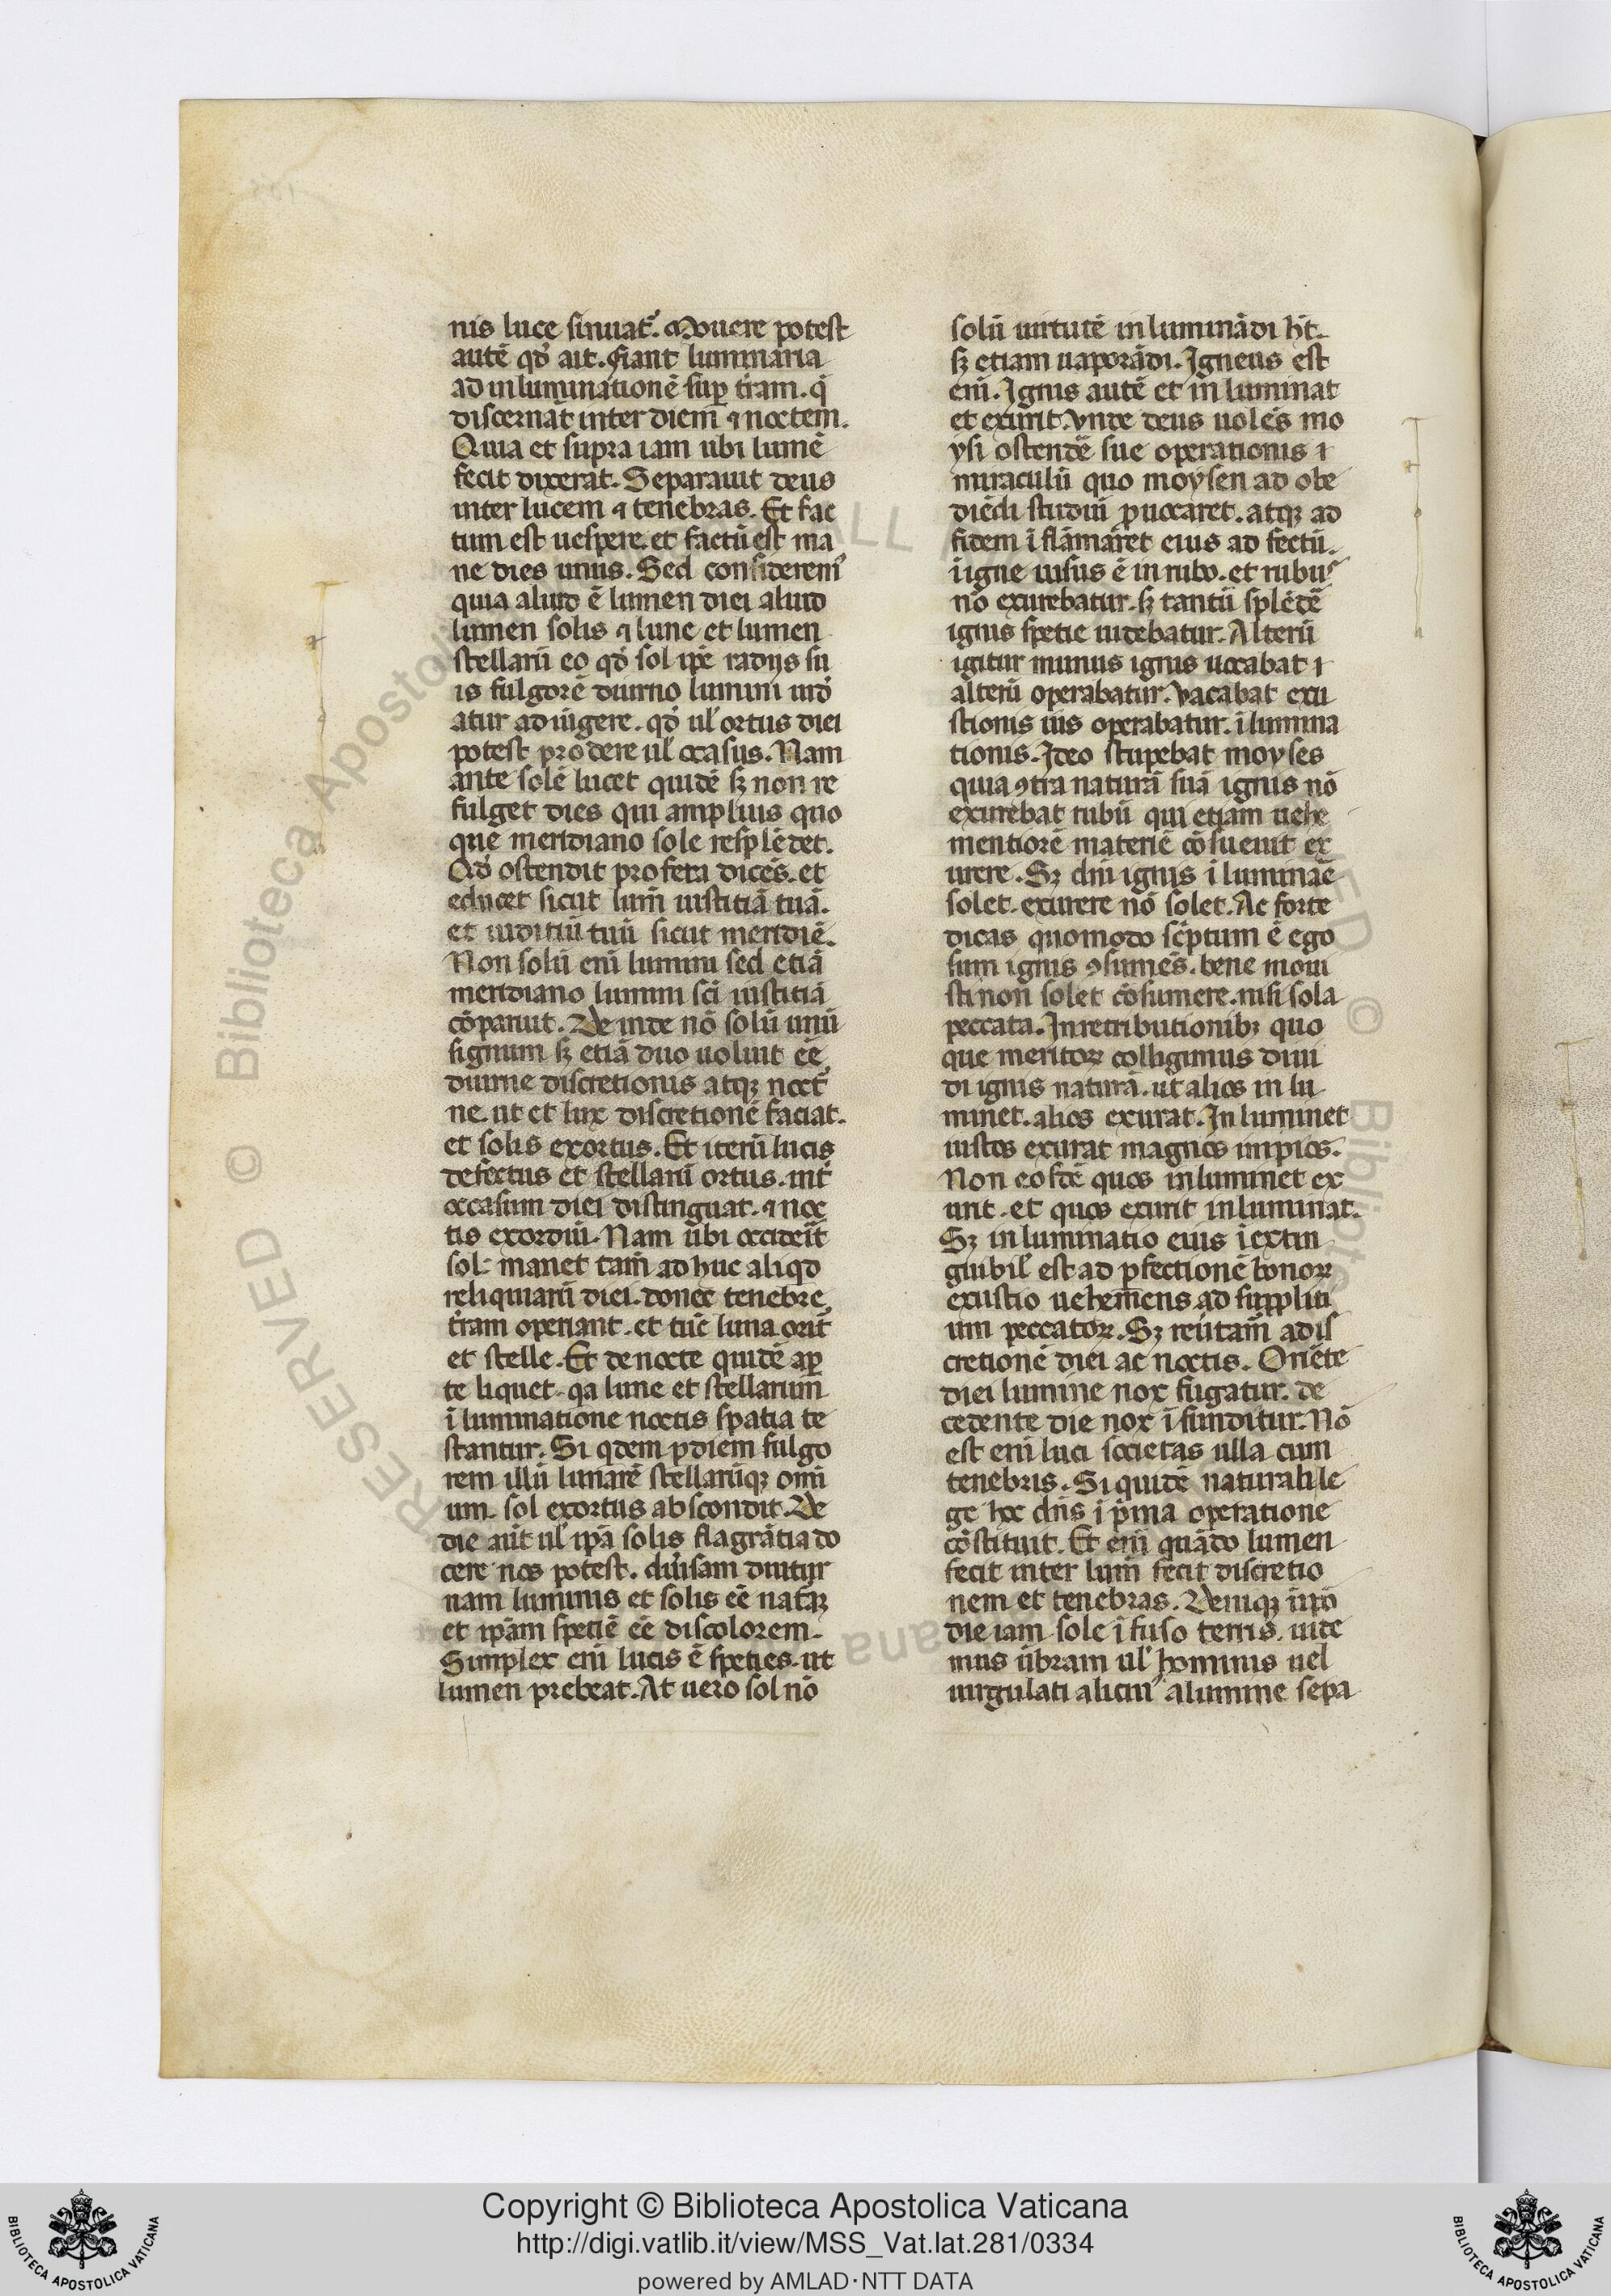 nis luce sinuat᷑. Mouere potest
autē qđ ait. fiant luminaria
ad inluminationē sup̱ t̄ram. q̄
discernāt inter diem ⁊ noctem.
Quia et supra iam ubi lumē
fecit dixerat. Separauit deus
inter lucem ⁊ tenebras. Et fac
tum est uespere. et factū est ma
ne dies unus. Sed considerem᷒
quia aliud ē lumen diei aliud
lumen solis ⁊ lune et lumen
stellarū eo qđ sol ip̄e radijs su
is fulgorē diurno lumini uid̄
atur adiūgere. qđ ul̄ ortus diei
potest prodere ul̄ occasus. Nam
ante solē lucet quidē sꝫ non re
fulget dies qui amplius quo
que meridiano sole resplēdet.
Qđ ostendit profeta dicēs. et
educet sicut lum̄ iustitiā tuā.
et iuditiū tuū sicut meridiē.
Non solū eni lumini sed etiā
meridiano lumini sc̄i iustitiā
cōparuit. De inde nō solū unū
signum sꝫ etiā duo uoluit eē
diurne discretionis atqꝫ noct᷑
ne. ut et lux discretionē faciat.
et solis exortus. Et iterū lucis
defectus et stellarū ortus. int᷑
occasum diei distinguat. ⁊ noc
tis exordiū. Nam ubi occiderit
sol: manet tam̄ ad huc aliqd
reliquiarū diei. donec tenebre
t̄ram operiant. et tūc luna orit᷑
et stelle. Et de nocte quidē ap̱
te liquet. qa lune et stellarum
īluminatione noctis spatia te
stantur. Si qdem ꝑdiem fulgo
rem illū lunarē stellarūqꝫ omī
um. sol exortus abscondit. De
die aūt ul̄ ip̄a solis flagrātia do
cere nos potest. diūsam diutur
nam luminis et solis eē natā
et ip̄am spetiē eē discolorem.
Simplex eni lucis ē speties. ut
lumen prebeat. At uero sol nō
solū uirtutē inluminādi h̄t.
sꝫ etiam uaporādi. Igneus est
enī. Ignis autē et inluminat
et exurit. Vnde deus uolēs mo
ysi ostendē sue operationis ı
miraculū quo moysen ad obe
diēdi studiū ꝓuocaret. atqꝫ ad
fidem ī flāmaret eius ad fectū.
iīgne uisus ē in rubo. et rubus
nō exurebatur. sꝫ tantū splēdē
ignis spetie uidebatur. Alterū
igitur munus ignis uacabat ı
alterū operabatur. Vacabat exu
stionis uis operabatur. ī lumina
tionis. Ideo stupebat moyses
quia ꝯtra naturā suā ignis nō
exurebat rubū qui etiam uehe
mentiorē materiē cōsueuit ex
urere. Sꝫ dn̄i ignis īluminaē
solet. exurere nō solet. Ac forte
dicas quomodo sc̄ptum ē ego
sum ignis ꝯsumēs. bene moui
sti non solet cōsumere. nisi sola
peccata. In retributionibꝫ quo
que meritoꝝ colligimus diui
di ignis naturā. ut alios inlu
minet. alios exurat. In luminet
iustos exurat magnos impios.
Non eosdē quos inluminet ex
urit. et quos exurit inluminat.
Sꝫ inluminatio eius iextin
guibil̄ est ad ꝑfectionē bonoꝝ
exustio uehemens ad suppliti
um peccatoꝝ. Sꝫ reūtam̄ adis
cretionē diei ac noctis. Oriēte
diei lumine nox fugatur. de
cedente die nox ī funditur. Nō
est eni luci societas ulla cum
tenebris. Si quidē naturali le
ge hoc dn̄s ī p̄ma operatione
cōstituit. Et enī quādo lumen
fecit inter lum̄ fecit discretio
nem et tenebras. Deniqꝫ iīpō
die iam sole ī fuso terris. uide
mus ūbram ul̄ hominis uel
uirgulati alicui᷒ alumine sepa
Copyright © Biblioteca Apostolica Vaticana
http://digi.vatlib.it/view/MSS_Vat.lat.281/0334
powered by AMLAD·NTT DATA